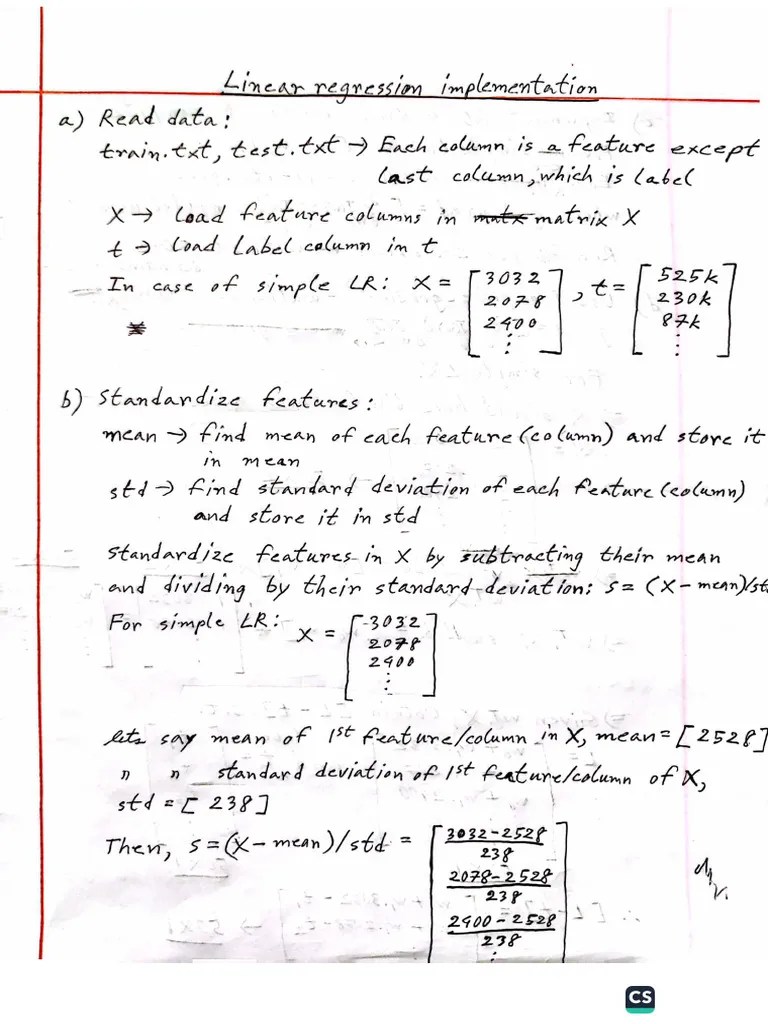 Linear regression implementation
a) Read data:
train.txt, test.txt → Each column is a feature except
last column, which is label
X → Load feature columns in matx matrix X
t → Load label column in t
In case of simple LR: X = [3032 2078 2400 ⋮], t = [525k 230k 87k ⋮]
b) Standardize features:
mean → find mean of each feature (column) and store it
in mean
std → find standard deviation of each feature (column)
and store it in std
standardize features in X by subtracting their mean
and dividing by their standard deviation: s = (X - mean)/st
For simple LR: X = [3032 2078 2400 ⋮]
lets say mean of 1st feature/column in X, mean = [2528]
" " standard deviation of 1st feature/column of X,
std = [238]
Then, s = (X - mean)/std = [3032-2528/238
2078-2528/238
2400-2528/238
⋮]
CS